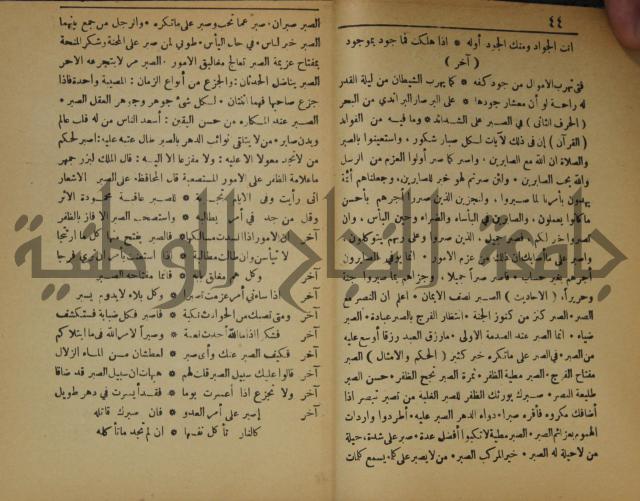 ٤٤
انت الجواد ومنك الجود أوله * اذا هلكت فما جود بموجود
( آخر )
فتى تهرب الاموال من جود كفه * كما يهرب الشيطان من ليلة القدر
له راحة لو أن معشار جودها * على البر صار البر اندى من البحر
( الحرف الثانى ) فى الصبر على الشدائد * وما فيه من الفوائد
( القرآن ) إن فى ذلك لآيات لكل صبار شكور ، واستعينوا بالصبر
والصلاة ان الله مع الصابرين ، واصبر كما صبر أولوا العزم من الرسل
والله يحب الصابرين ، ولئن صبرتم لهو خير للصابرين، وجعلناهم أئمة
يهدون بأمرنا لما صبروا ، ولنجزين الذين صبروا أجرهم بأحسن
ما كانوا يعملون ، والصابرين فى البأساء والضراء وحين البأس ، وان
تصبروا خير لكم، فصبر جميل ، الذين صبروا وعلى ربهم يتوكلون ،
واصبر على ما أصابك ان ذلك من عزم الامور ، انما يوفى الصابرون
أجرهم بغير حساب * فاصبر صبراً جميلا ، وجزاهم بما صبروا جنة
وحريراً، ( الاحاديث ) الصبر نصف الايمان ، اعلم ان النصر مع
الصبر ، الصبر كنز من كنوز الجنة ، انتظار الفرج بالصبر عبادة ، الصبر
ضياء ، انما الصبر عند الصدمة الاولى ، ما رزق العبد رزقا أوسع عليه
من الصبر ، فى الصبر على ماتكره خير كثير ( الحكم والامثال ) الصبر
مفتاح الفرج ، الصبر مطية الظفر ، ثمرة الصبر نجح الظفر ، حسن الصبر
طليعة النصر ، صبرك يورثك الظفر الصبر الغلبة من تصبر تبصر اذا
أضافك مكروه فأقره صبرا ، دواء الدهر الصبر عليه ، أطردوا واردات
الهموم بعزائم الصبر ، الصبر مطية لا تكبو أفضل عدة ، صبر على شدة، حيلة
من لا حيلة له الصبر ، خير المركب الصبر ، من لا يصبر على كلمة يسمع كلمات
الصبر صبران ، صبر عما تحب وصبر على ماتكره ، والرجل من جمع بينهما
الصبر خير لباس ، فى حال اليأس ، طوبى لمن صبر على المحنة وشكر المنحة
بمفتاح عزيمة الصبر تعالج مغاليق الامور ، الصبر مر لا يتجرعه الا حر
الصبر يناضل الحدثان ، والجزع من أنواع الزمان : المصيبة واحدة فاذا
جزع صاحبها فهما اثنتان ، لكل شئ جوهر وجوهر العقل الصبر ،
الصبر عند المكاره ، من حسن اليقين : أسعد الناس من له قلب عالم
وبدن صابر ، من لا يتلقى نوائب الدهر بالصبر طال عتبه عليه : اصبر لحكم
من لا تجد معولا الا عليه : ولا مفزعا الا اليه : قال الملك لبزر جمهر
ماعلامة الظفر على الامور المستصعبة قال المحافظة على الصبر الاشعار
انى رأيت وفى الايام تجربة * للصبر عاقبة محمودة الأثر
وقل من جد فى أمر يطالبه * واستصحب الصبر الا فاز بالظفر
آخر ان الامور اذا انسدت مسالكها * فالصبر يفتح منها كل ما ارتتجا
لا تيأسن وان طالت مطالبة * اذا استعنت بصبر ان ترى فرجا
آخر وكل هم مغاليق * فانما مفتاحه الصبر
آخر اذا ساءنى أمر عزمت تصبرا * وكل بلاء لا يدوم يسير
آخر ومتى تصبك من الحوادث نكبة * فاصبر فكل ضبابة فستكشف
آخر فشكرا اذا ما الله أحدث نعمة * وصبراً لامر الله فى ما ابتلاكم
آخر فكيف الصبر عنك وأى صبر * لعطشان من الماء الزلال
آخر قالوا عليك سبيل الصبر قلت لهم * هيهات ان سبيل الصبر قد ضاقا
آخر ولا تجزع اذا أعسرت يوما * فقد أيسرت فى دهر طويل
آخر إصبر على أمر العدو * فان صبرك قاتله
كالنار تأكل نفسها * ان لم تجد ما تأكله
جامعة النجاح الوطنية